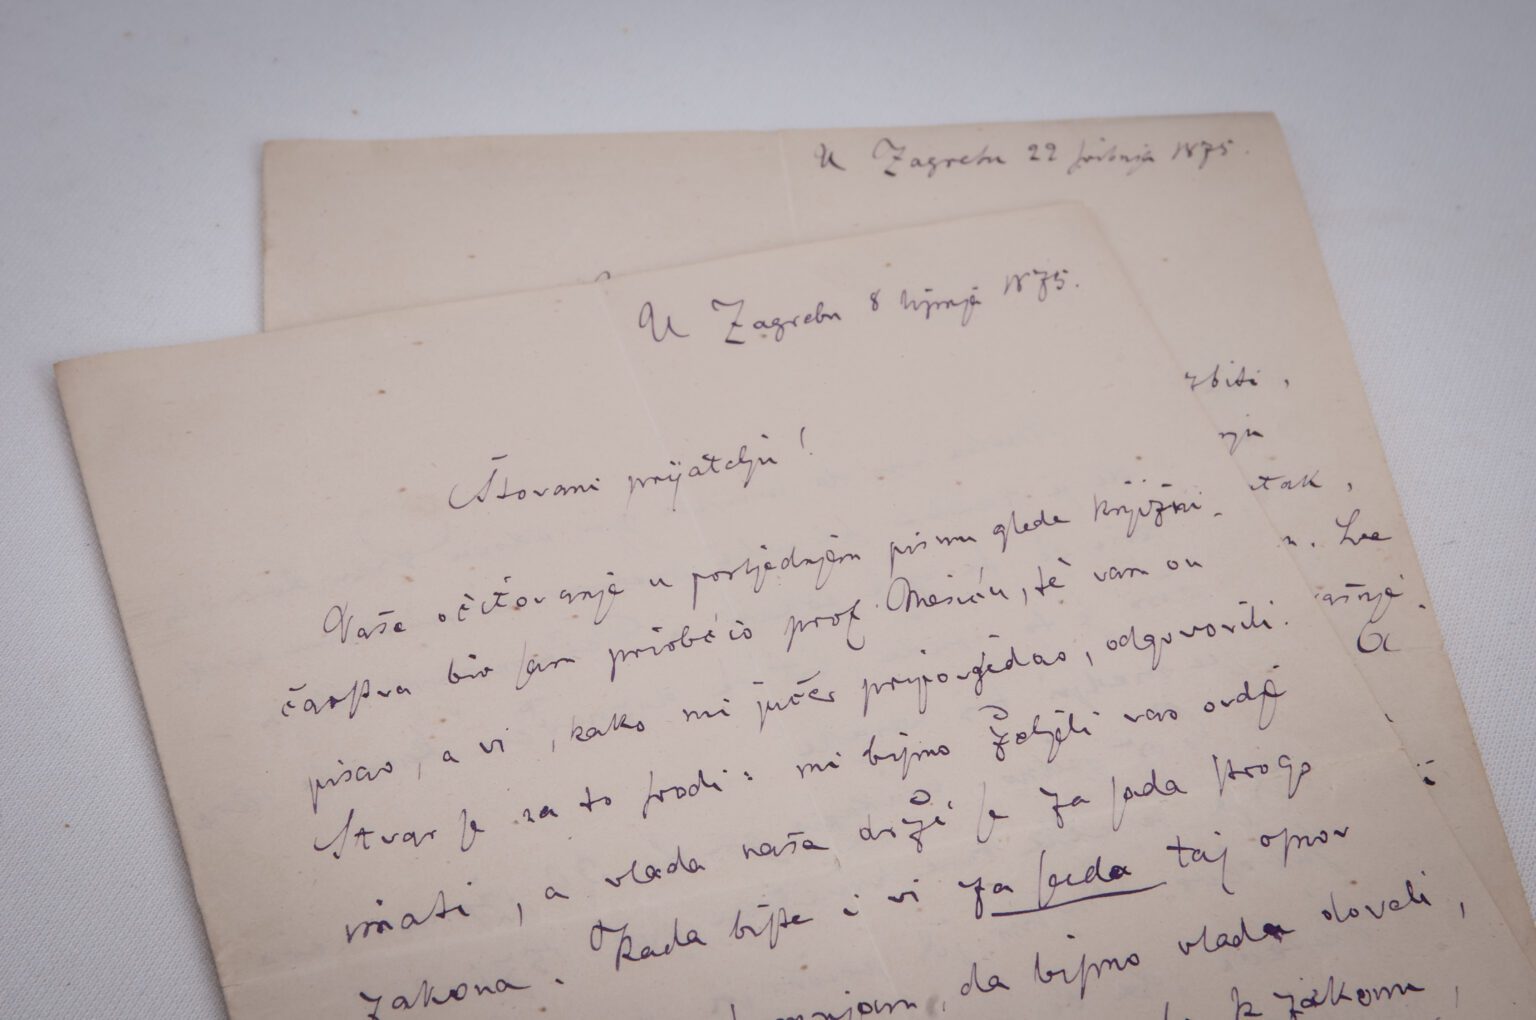 U Zagrebu 22 svibnja 1875.
U Zagrebu 8 lipnja 1875.
zbiti,
nju
Štovani prijatelju!
tak,
Vaše očitovanje u posljednjem pismu glede knjižni-
n. Sve
čarstva bio sam priobćio prof. Mesiću, te vam on
ašnje.
pisao, a vi, kako mi jučer pripovjedao, odgovorili.
Stvar je na to svodi: mi bismo željeli vas ovdje
imati, a vlada naša drži se za sada strogo
zakona. Kada biste i vi za sada taj osnov
da bismo vladu doveli,
k zakonu,